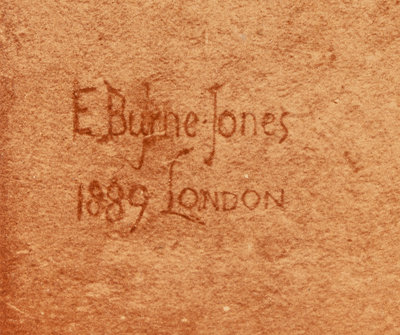 E Burne-Jones
1889 London